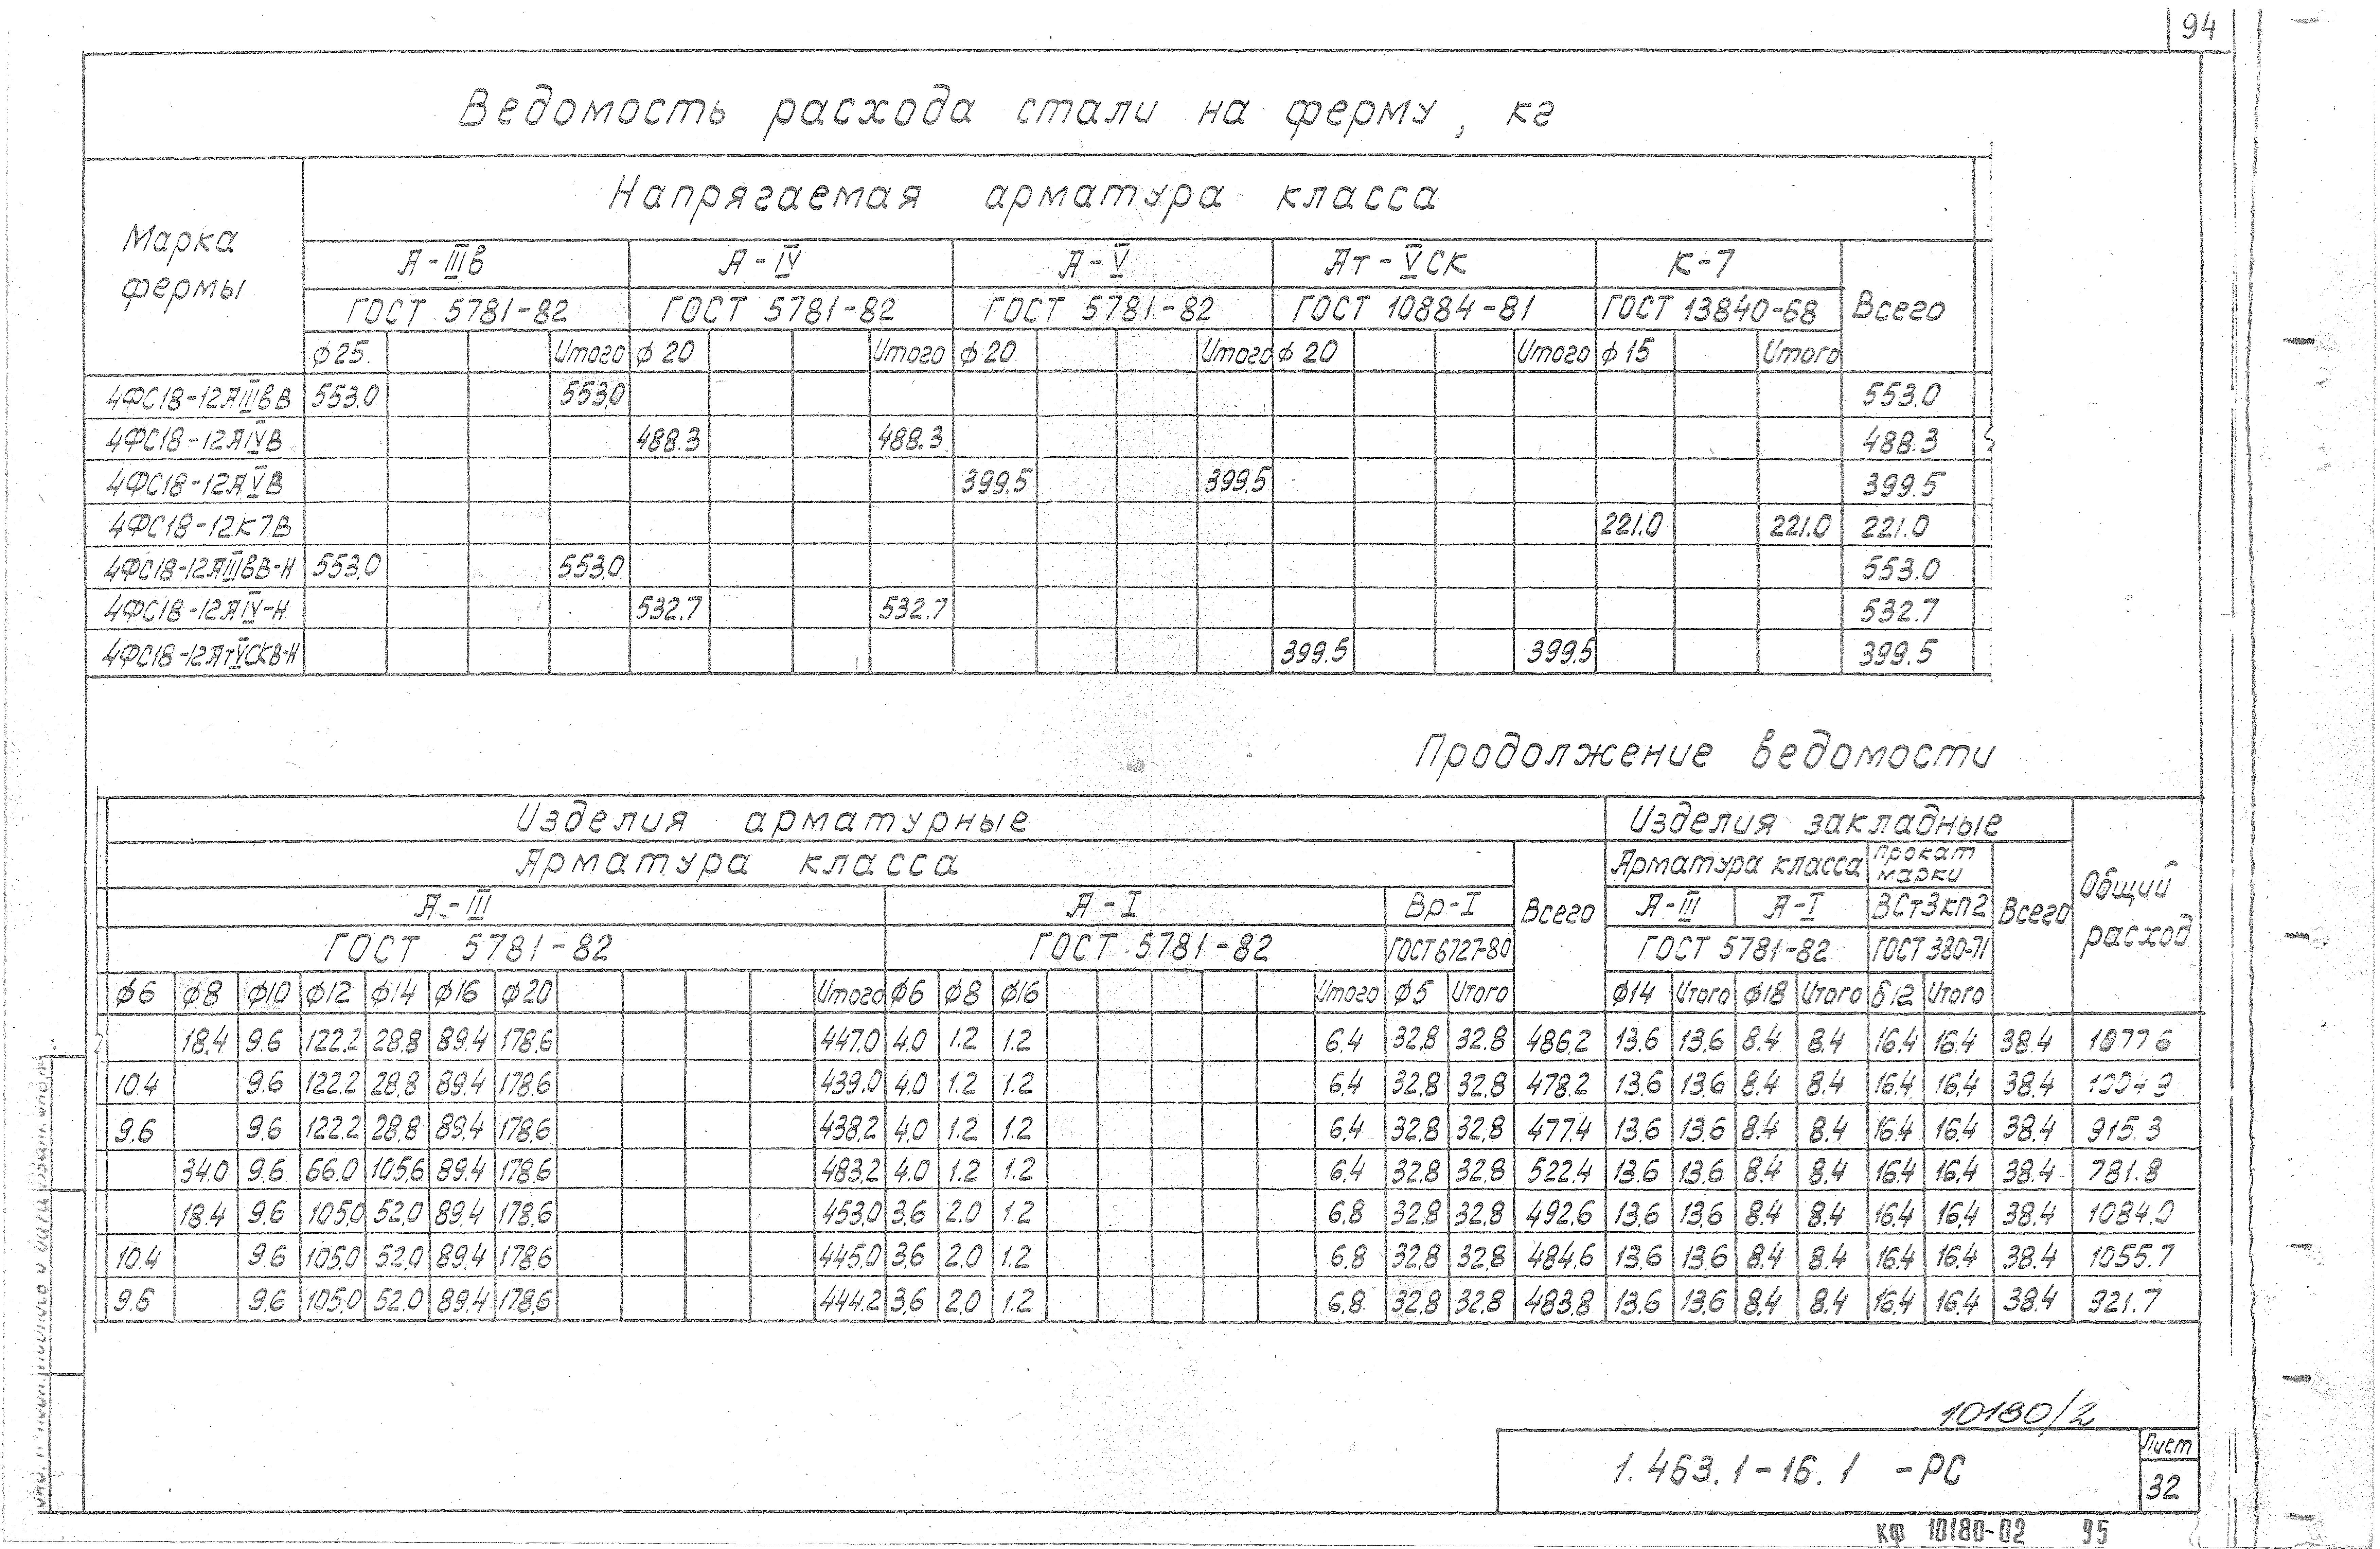 94
Ведомость расхода стали на ферму, кг
Марка фермы
Напрягаемая арматура класса
А-IIIв А-IV А-V Ат-VСК К-7 Всего
ГОСТ 5781-82 ГОСТ 5781-82 ГОСТ 5781-82 ГОСТ 10884-81 ГОСТ 13840-68
ф25 Итого ф20 Итого ф20 Итого ф20 Итого ф15 Итого
4ФС18-12АIIIвВ 553.0 553.0 553.0
4ФС18-12АIVВ 488.3 488.3 488.3
4ФС18-12АVВ 399.5 399.5 399.5
4ФС18-12К7В 221.0 221.0 221.0
4ФС18-12АIIIвВ-Н 553.0 553.0 553.0
4ФС18-12АIV-Н 532.7 532.7 532.7
4ФС18-12АтVСКВ-Н 399.5 399.5 399.5
Продолжение ведомости
Изделия арматурные Изделия закладные Общий расход
Арматура класса Всего Арматура класса Прокат марки Всего
А-III А-I Вр-I А-III А-I ВСт3кп2
ГОСТ 5781-82 ГОСТ 5781-82 ГОСТ 6727-80 ГОСТ 5781-82 ГОСТ 380-71
ф6 ф8 ф10 ф12 ф14 ф16 ф20 Итого ф6 ф8 ф16 Итого ф5 Итого ф14 Итого ф18 Итого δ12 Итого
18.4 9.6 122.2 28.8 89.4 178.6 447.0 4.0 1.2 1.2 6.4 32.8 32.8 486.2 13.6 13.6 8.4 8.4 16.4 16.4 38.4 1077.6
10.4 9.6 122.2 28.8 89.4 178.6 439.0 4.0 1.2 1.2 6.4 32.8 32.8 478.2 13.6 13.6 8.4 8.4 16.4 16.4 38.4 1004.9
9.6 9.6 122.2 28.8 89.4 178.6 438.2 4.0 1.2 1.2 6.4 32.8 32.8 477.4 13.6 13.6 8.4 8.4 16.4 16.4 38.4 915.3
34.0 9.6 66.0 105.6 89.4 178.6 483.2 4.0 1.2 1.2 6.4 32.8 32.8 522.4 13.6 13.6 8.4 8.4 16.4 16.4 38.4 781.8
18.4 9.6 105.0 52.0 89.4 178.6 453.0 3.6 2.0 1.2 6.8 32.8 32.8 492.6 13.6 13.6 8.4 8.4 16.4 16.4 38.4 1084.0
10.4 9.6 105.0 52.0 89.4 178.6 445.0 3.6 2.0 1.2 6.8 32.8 32.8 484.6 13.6 13.6 8.4 8.4 16.4 16.4 38.4 1055.7
9.6 9.6 105.0 52.0 89.4 178.6 444.2 3.6 2.0 1.2 6.8 32.8 32.8 483.8 13.6 13.6 8.4 8.4 16.4 16.4 38.4 921.7
10180/2
1.463.1-16.1 -РС
Лист
32
КФ 10180-02 95